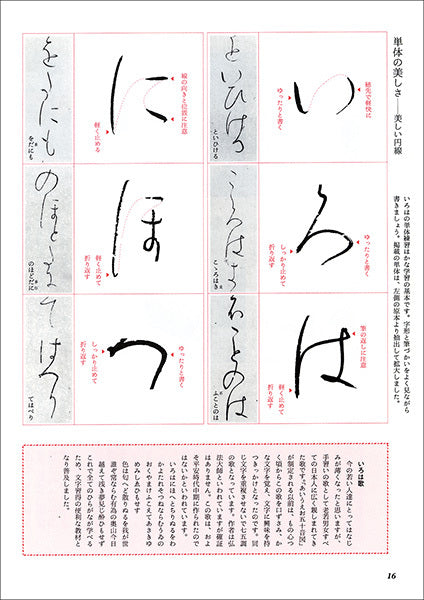 単体の美しさ——美しい円線
いろはの単体練習はかな学習の基本です。字形と筆づかいをよく見ながら
書きましょう。掲載の単体は、左側の原本より抽出して拡大しました。
い
穂先で軽快に
ゆったりと書く
といひける
ろ
しっかり止めて
折り返す
こゝろはま
は
筆の返しに注意
軽く止めて
折り返す
ふことのは
に
線の向きと位置に注意
軽く止める
をだにも
ほ
軽く止めて
折り返す
のほどだに
つ
ゆったりと書く
しっかり止めて
折り返す
てはべり
いろは歌
今の若い人達にとってはなじ
みが薄くなったと思いますが、
手習いの歌として老若男女すべ
ての日本人に広く親しまれてき
た歌です。「あいうえお五十音図」
が制定される以前は、もの心つ
く頃からこの歌を口ずさみ、か
な文字を覚え、文字に興味を持
つきっかけとなったのです。同
じ文字を重複させないで七五調
の歌となっています。作者は弘
法大師といわれていますが確証
はありません。この歌は、およ
そ平安時代中期に作られたので
はないかといわれています。
いろはにほへとちりぬるをわ
かよたれそつねならむうゐの
おくやまけふこえてあさきゆ
めみしゑひもせす
色は匂へど散りぬるを我が世
誰ぞ常ならむ有為の奥山今日
越えて浅き夢見じ酔ひもせず
これで全てのひらがなが学べる
ため、文字習得の便利な教材と
なり普及しました。
16